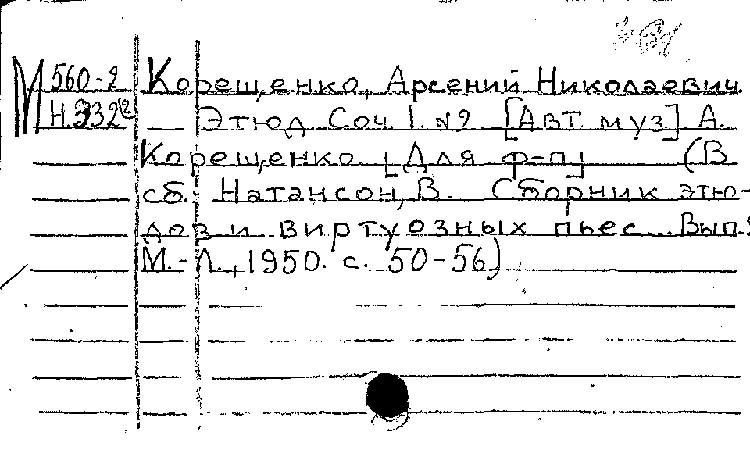 М 560-2 Корещенко, Арсений Николаевич
Н.332 Этюд Соч. 1 №2 [Авт. муз] А.
Корещенко [Для ф-п] (В
сб.: Натансон, В. Сборник этю-
дов и виртуозных пьес. Вып.
М.-Л., 1950. с. 50-56)